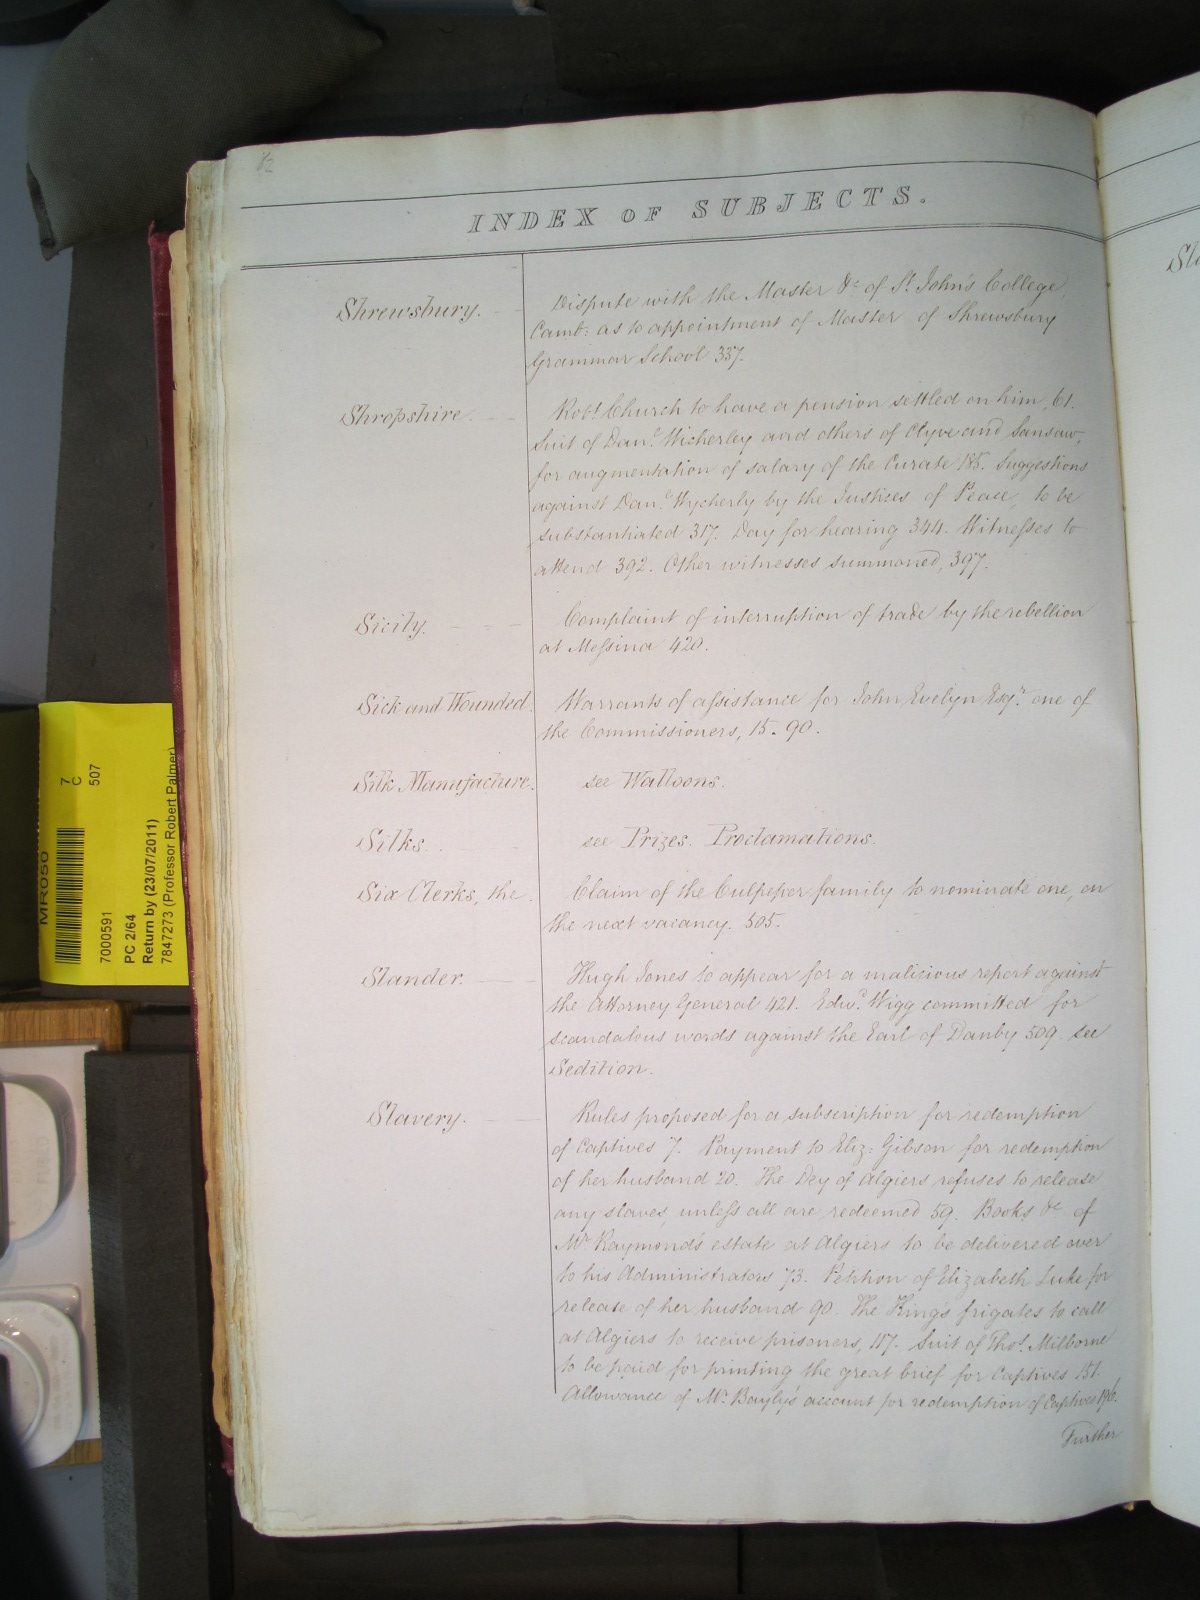 82
INDEX OF SUBJECTS.
Shrewsbury.
Dispute with the Master &c of St. John's College,
Camb: as to appointment of Master of Shrewsbury
Grammar School 337.
Shropshire.
Robt. Church to have a pension settled on him, 61.
Suit of Danl. Wicherley and others of Clyve and Sansaw,
for augmentation of salary of the Curate 185. Suggestions
against Danl. Wycherly by the Justices of Peace, to be
substantiated 317. Day for hearing 344. Witnesses to
attend 392. Other witnesses summoned, 397.
Sicily.
Complaint of interruption of trade by the rebellion
at Messina 420.
Sick and Wounded.
Warrants of assistance for John Evelyn Esqr. one of
the Commissioners, 15. 90.
Silk Manufacture.
see Walloons.
Silks.
see Prizes. Proclamations.
Six Clerks, the.
Claim of the Culpeper family to nominate one, on
the next vacancy. 505.
Slander.
Hugh Jones to appear for a malicious report against
the Attorney General 421. Edwd. Wigg committed for
scandalous words against the Earl of Danby 509 see
Sedition.
Slavery.
Rules proposed for a subscription for redemption
of Captives 7. Payment to Eliz: Gibson for redemption
of her husband 20. The Dey of Algiers refuses to release
any slaves, unless all are redeemed 59. Books &c of
Mr. Raymond's estate at Algiers to be delivered over
to his Administrators 73. Petition of Elizabeth Luke for
release of her husband 90. The King's frigates to call
at Algiers to receive prisoners, 117. Suit of Thos. Milborne
to be paid for printing the great brief for Captives 151.
Allowance of Mr. Bayly's account for redemption of Captives 196.
Further
MR050
7
C
507
7000591
PC 2/64
Return by (23/07/2011)
7847273 (Professor Robert Palmer)